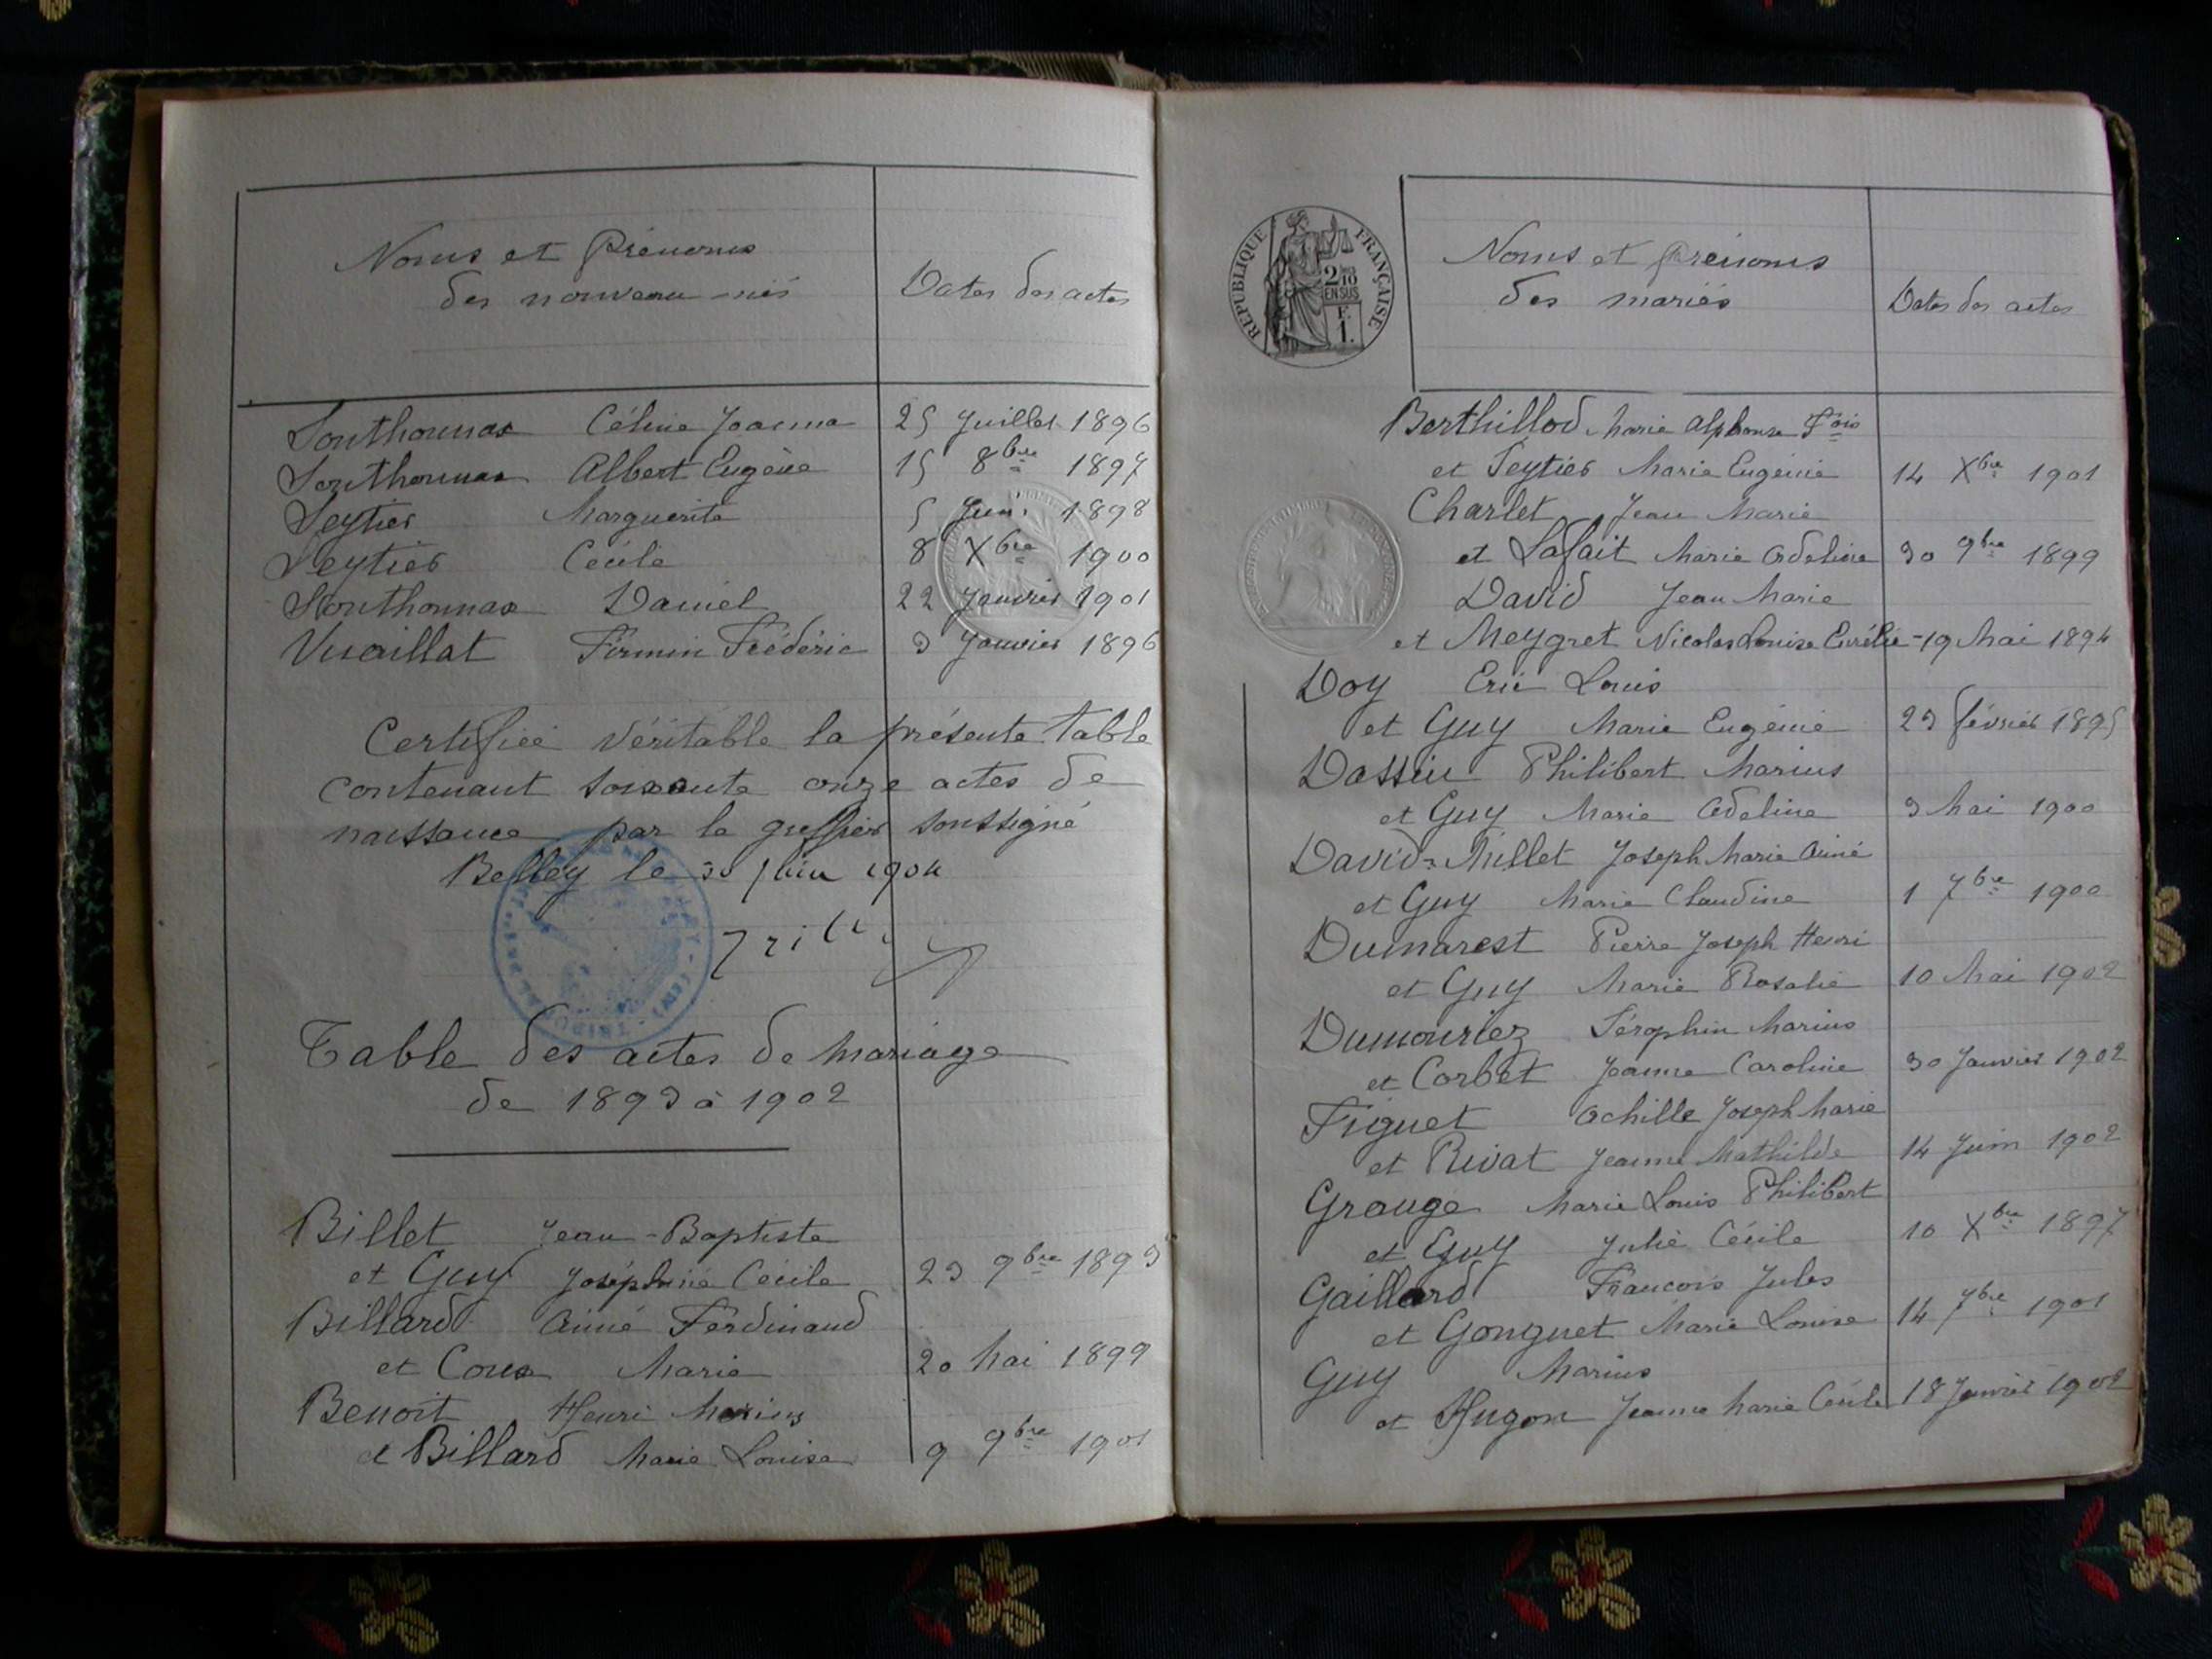 Noms et Prénoms
des nouveau-nés
Dates des actes
Sonthonnax Céline Joanna 25 Juillet 1896
Sonthonnax Albert Eugène 15 8bre 1897
Seytier Marguerite 5 1898
Seytier Cécile 8 Xbre 1900
Sonthonnax Daniel 22 Janvier 1901
Vuaillat Firmin Frédéric 3 Janvier 1896
Certifiée véritable la présente table
contenant soixante onze actes de
naissance par le greffier soussigné
Belley le 30 Juin 1904
Table des actes de mariage
de 1893 à 1902
Billet Jean-Baptiste
et Guy Joséphine Cécile 23 9bre 1893
Billard Aimé Ferdinand
et Coux Marie 20 Mai 1899
Benoit Henri Marius
et Billard Marie Louise 9 9bre 1901
RÉPUBLIQUE FRANÇAISE
2/10
EN SUS
F.
1.
Noms et Prénoms
des mariés
Dates des actes
Berthillod Marie Alphonse Fois
et Seytier Marie Eugénie 14 Xbre 1901
Charlet Jean Marie
et Lafait Marie Adeline 30 9bre 1899
David Jean Marie
et Meygret Nicolas Louise Eurélie - 19 Mai 1894
Doy Eric Louis
et Guy Marie Eugénie 23 février 1895
Dassin Philibert Marius
et Guy Marie Adeline 3 Mai 1900
David-Millet Joseph Marie Aimé
et Guy Marie Claudine 1 7bre 1900
Dumarest Pierre Joseph Henri
et Guy Marie Rosalie 10 Mai 1902
Dumouriez Séraphin Marius
et Corbet Jeanne Caroline 30 Janvier 1902
Figuet Achille Joseph Marie
et Rivat Jeanne Mathilde 14 Juin 1902
Grange Marie Louis Philibert
et Guy Julie Cécile 10 Xbre 1897
Gaillard Francois Jules
et Gonguet Marie Louise 14 7bre 1901
Guy Marius
et Hugon Jeanne Marie Cécile 18 Janvier 1902